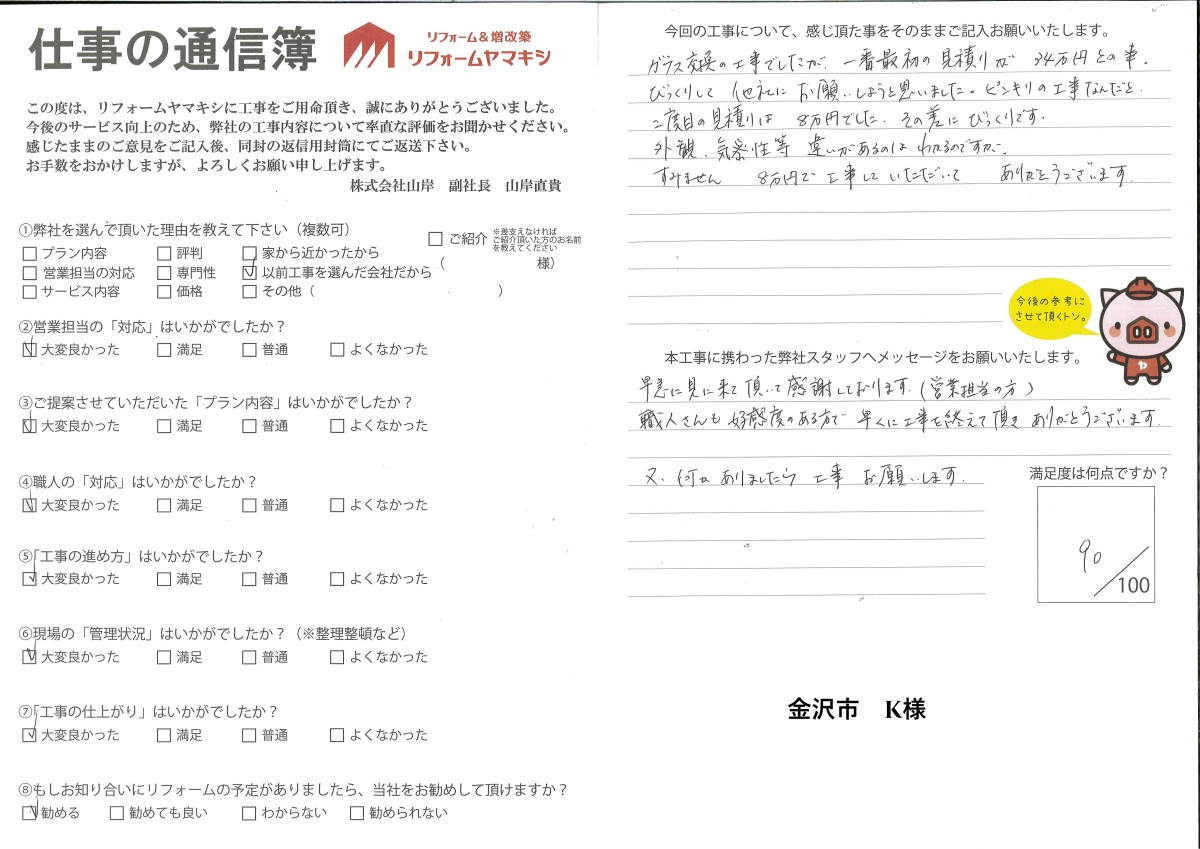 仕事の通信簿
リフォーム＆増改築
リフォームヤマキシ
この度は、リフォームヤマキシに工事をご用命頂き、誠にありがとうございました。
今後のサービス向上のため、弊社の工事内容について率直な評価をお聞かせください。
感じたままのご意見をご記入後、同封の返信用封筒にてご返送下さい。
お手数をおかけしますが、よろしくお願い申し上げます。
株式会社山岸　副社長　山岸直貴
①弊社を選んで頂いた理由を教えて下さい（複数可）
□ プラン内容 □ 評判 □ 家から近かったから
□ 営業担当の対応 □ 専門性 ☑ 以前工事を選んだ会社だから
□ サービス内容 □ 価格 □ その他（　　　）
□ ご紹介 ※差支えなければ
ご紹介頂いた方のお名前
を教えてください
（　　　様）
②営業担当の「対応」はいかがでしたか？
☑ 大変良かった □ 満足 □ 普通 □ よくなかった
③ご提案させていただいた「プラン内容」はいかがでしたか？
☑ 大変良かった □ 満足 □ 普通 □ よくなかった
④職人の「対応」はいかがでしたか？
☑ 大変良かった □ 満足 □ 普通 □ よくなかった
⑤「工事の進め方」はいかがでしたか？
☑ 大変良かった □ 満足 □ 普通 □ よくなかった
⑥現場の「管理状況」はいかがでしたか？（※整理整頓など）
☑ 大変良かった □ 満足 □ 普通 □ よくなかった
⑦「工事の仕上がり」はいかがでしたか？
☑ 大変良かった □ 満足 □ 普通 □ よくなかった
⑧もしお知り合いにリフォームの予定がありましたら、当社をお勧めして頂けますか？
☑ 勧める □ 勧めても良い □ わからない □ 勧められない
今回の工事について、感じ頂た事をそのままご記入お願いいたします。
ガラス交換の工事でしたが、一番最初の見積りが 34万円との事。
びっくりして 他社に お願いしようと思いました。ピンキリの工事なんだと。
二度目の見積りは 8万円でした。その差に びっくりです。
外観、気密性等 違いがあるのは わかるのですが、
すみません 8万円で 工事して いただいて ありがとうございます。
今後の参考に
させて頂くトン。
ヤ
本工事に携わった弊社スタッフへメッセージをお願いいたします。
早急に見に来て頂いて感謝しております。（営業担当の方）
職人さんも 好感度のある方で 早くに工事を終えて頂き ありがとうございます。
又、何か ありましたら 工事 お願いします。
満足度は何点ですか？
90／100
金沢市　K様